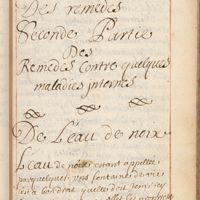 Des remedes
Seconde Partie
Des
Remedes Contre quelques
maladies jnternes
De L'eau de noix
L'eau de noix estant appellée
par quelques uns fontaine de vie